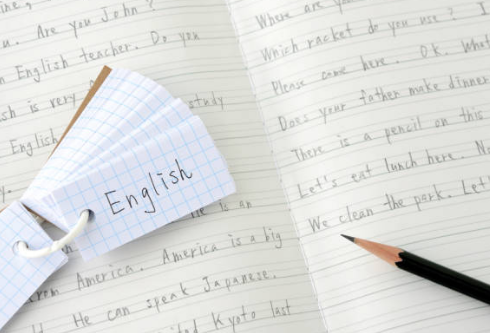 u. Are you John?
n English teacher. Do you
sh is very
study
English
English
is an
from America. America is a big
He can speak Japanese.
Kyoto last
Where are you
Which racket do you use? I
Please come here. OK. What
Does your father make dinner
There is a pencil on this
Let's eat lunch here. N
We clean the park. Let'